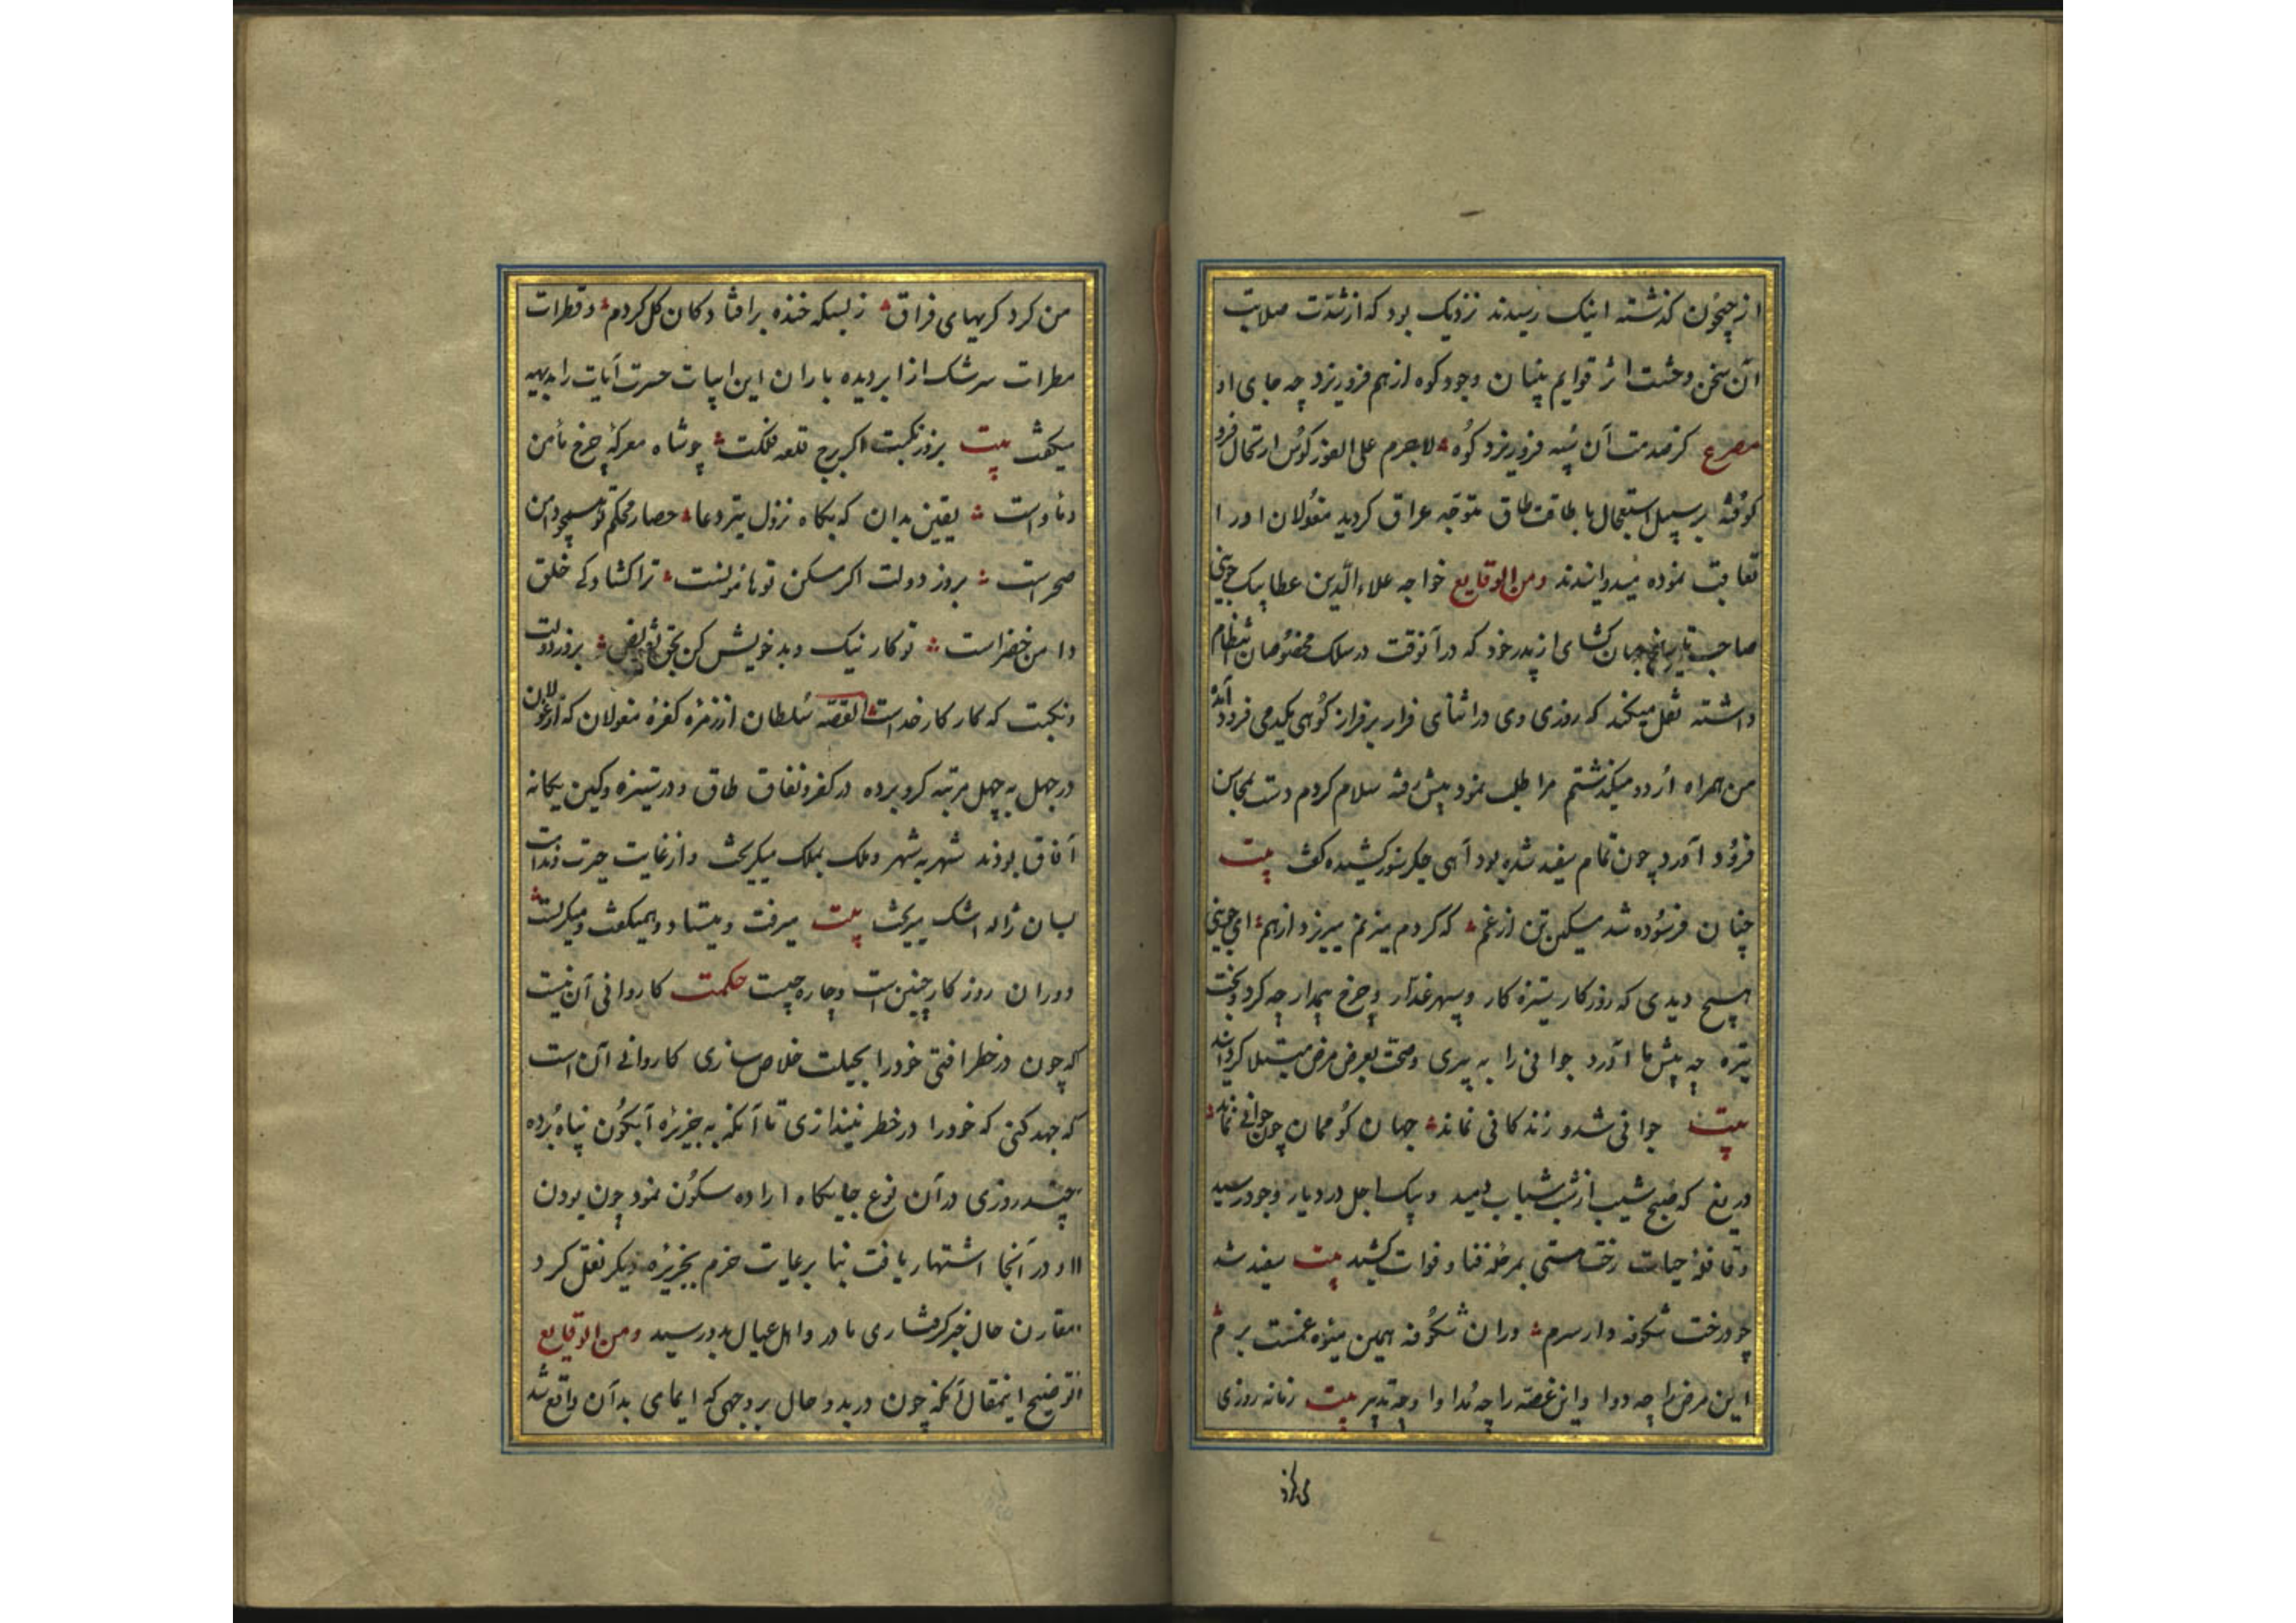 از جیحون کذشته اینک رسیدند نزدیک بود که از شدت صلابت
آن سخن وحشت اثر قوایم بنیان وجود کوه از هم فرو ریزد چه جای او
مصرع کز صدمت آن پشه فرو ریزد کوه لاجرم علی الفور کوس ارتحال فرو
کوفته بر سبیل استعجال با طاقت طاق متوجه عراق کردید مغولان او را
تعاقب نموده میدوانیدند ومن الوقایع خواجه علاء الدین عطا بیک جوینی
صاحب تاریخ جهان کشای از پدر خود که در آنوقت در سلک مخصوصان انتظام
داشته نقل میکند که روزی وی در اثنای فرار بر فراز کوهی یکدمی فرود آمد
من همراه اردو میکذشتم مرا طلب نمود پیش رفته سلام کردم دست بمحاسن
فرود آورد چون تمام سفید شده بود آهی جکر سوز کشیده کفت بیت
چنان فرسوده شد مسکین تن از غم که کر دم میزنم میریزد از هم ای جوینی
هیچ دیدی که روزکار ستیزه کار و سپهر غدار و چرخ بیمدار چه کرد و بخت
تیره چه پیش ما آورد جوانی را به پیری وصحت بعرض مرض مبتلا کردانید
بیت جوانی شد و زندکانی نماند جهان کو ممان چون جوانی نماند
دریغ که صبح شیب از شب شباب دمید و پیک اجل در دیار وجود رسید
وقافله حیات رخت هستی بمرحله فنا و فوات کشید بیت سفید شد
چو درخت شکوفه دار سرم وزان شکوفه همین میوه غمست برم
این مرض را چه دوا واین غصه را چه مداوا وچه تدبیر بیت زمانه روزی
می کرد
من کرد کریهای فراق ز بسکه خنده بر افتادکان کل کردم وقطرات
مطرات سرشک از ابر دیده باران این ابیات حسرت آیات را بدیهه
میکفت بیت بروز نکبت اکر برج قلعه فلکت چو شاه معرکه چرخ مأمن
ومأواست یقین بدان که بکاه نزول تیر دعا حصار محکم تو همچو دامن
صحراست بروز دولت اکر مسکن تو هامونست ترا کشادکی خلق
دامن خضراست تو کار نیک وبد خویش کن بحق تفویض بروز دولت
ونکبت که کار کار خداست القصه سلطان از زمره کفره مغولان که از غولان
در جهل به چهل مرتبه کرو برده در کفر ونفاق طاق ودر ستیزه وکین یکانه
آفاق بودند شهر به شهر وملک بملک میکریخت واز غایت حیرت وندامت
بسان ژاله اشک میریخت بیت میرفت ومیستاد وهمیکفت ومیکریست
دوران روزکار چنین است وچاره چیست حکمت کاردانی آن نیست
که چون در خطر افتی خود را بحیلت خلاص سازی کاردانی آن است
که جهد کنی که خود را در خطر نیندازی تا آنکه به جزیره آبسکون پناه برده
چند روزی در آن نوع جایکاه اراده سکون نمود چون بودن
او در آنجا اشتهار یافت بنا بر رعایت حزم بجزیره دیکر نقل کرد
مقارن حال خبر کرفتاری مادر واهل عیال بدو رسید ومن الوقایع
توضیح اینمقال آنکه چون در بدو حال بر وجهی که ایمایی بدآن واقع شد